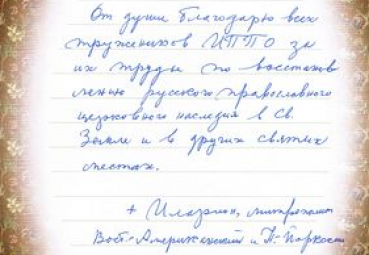 От души благодарю всех
тружеников ИППО за
их труды по восстанов
лению русского православного
церковного наследия в Св.
Земле и в других святых
местах.
+ Иларион, митрополит
Вост.-Американский и Н-Йоркский